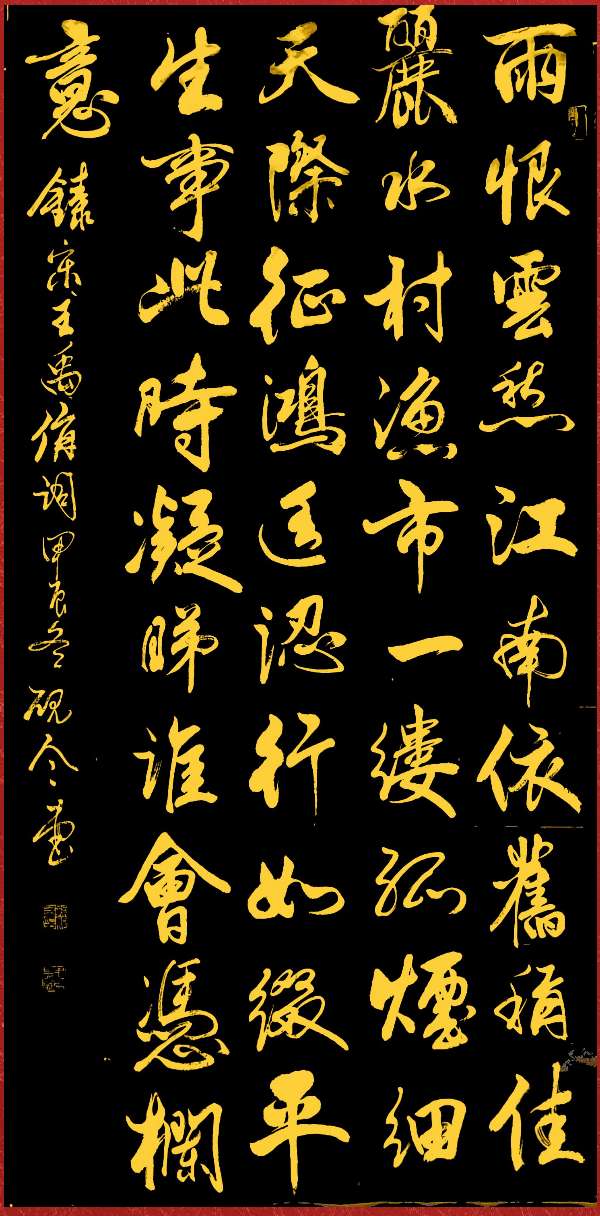 雨恨雲愁江南依舊稱佳
麗水村漁市一縷孤煙細
天際征鴻遥認行如綴平
生事此時凝睇誰會憑欄
意 錄宋王禹偁詞甲辰冬硯